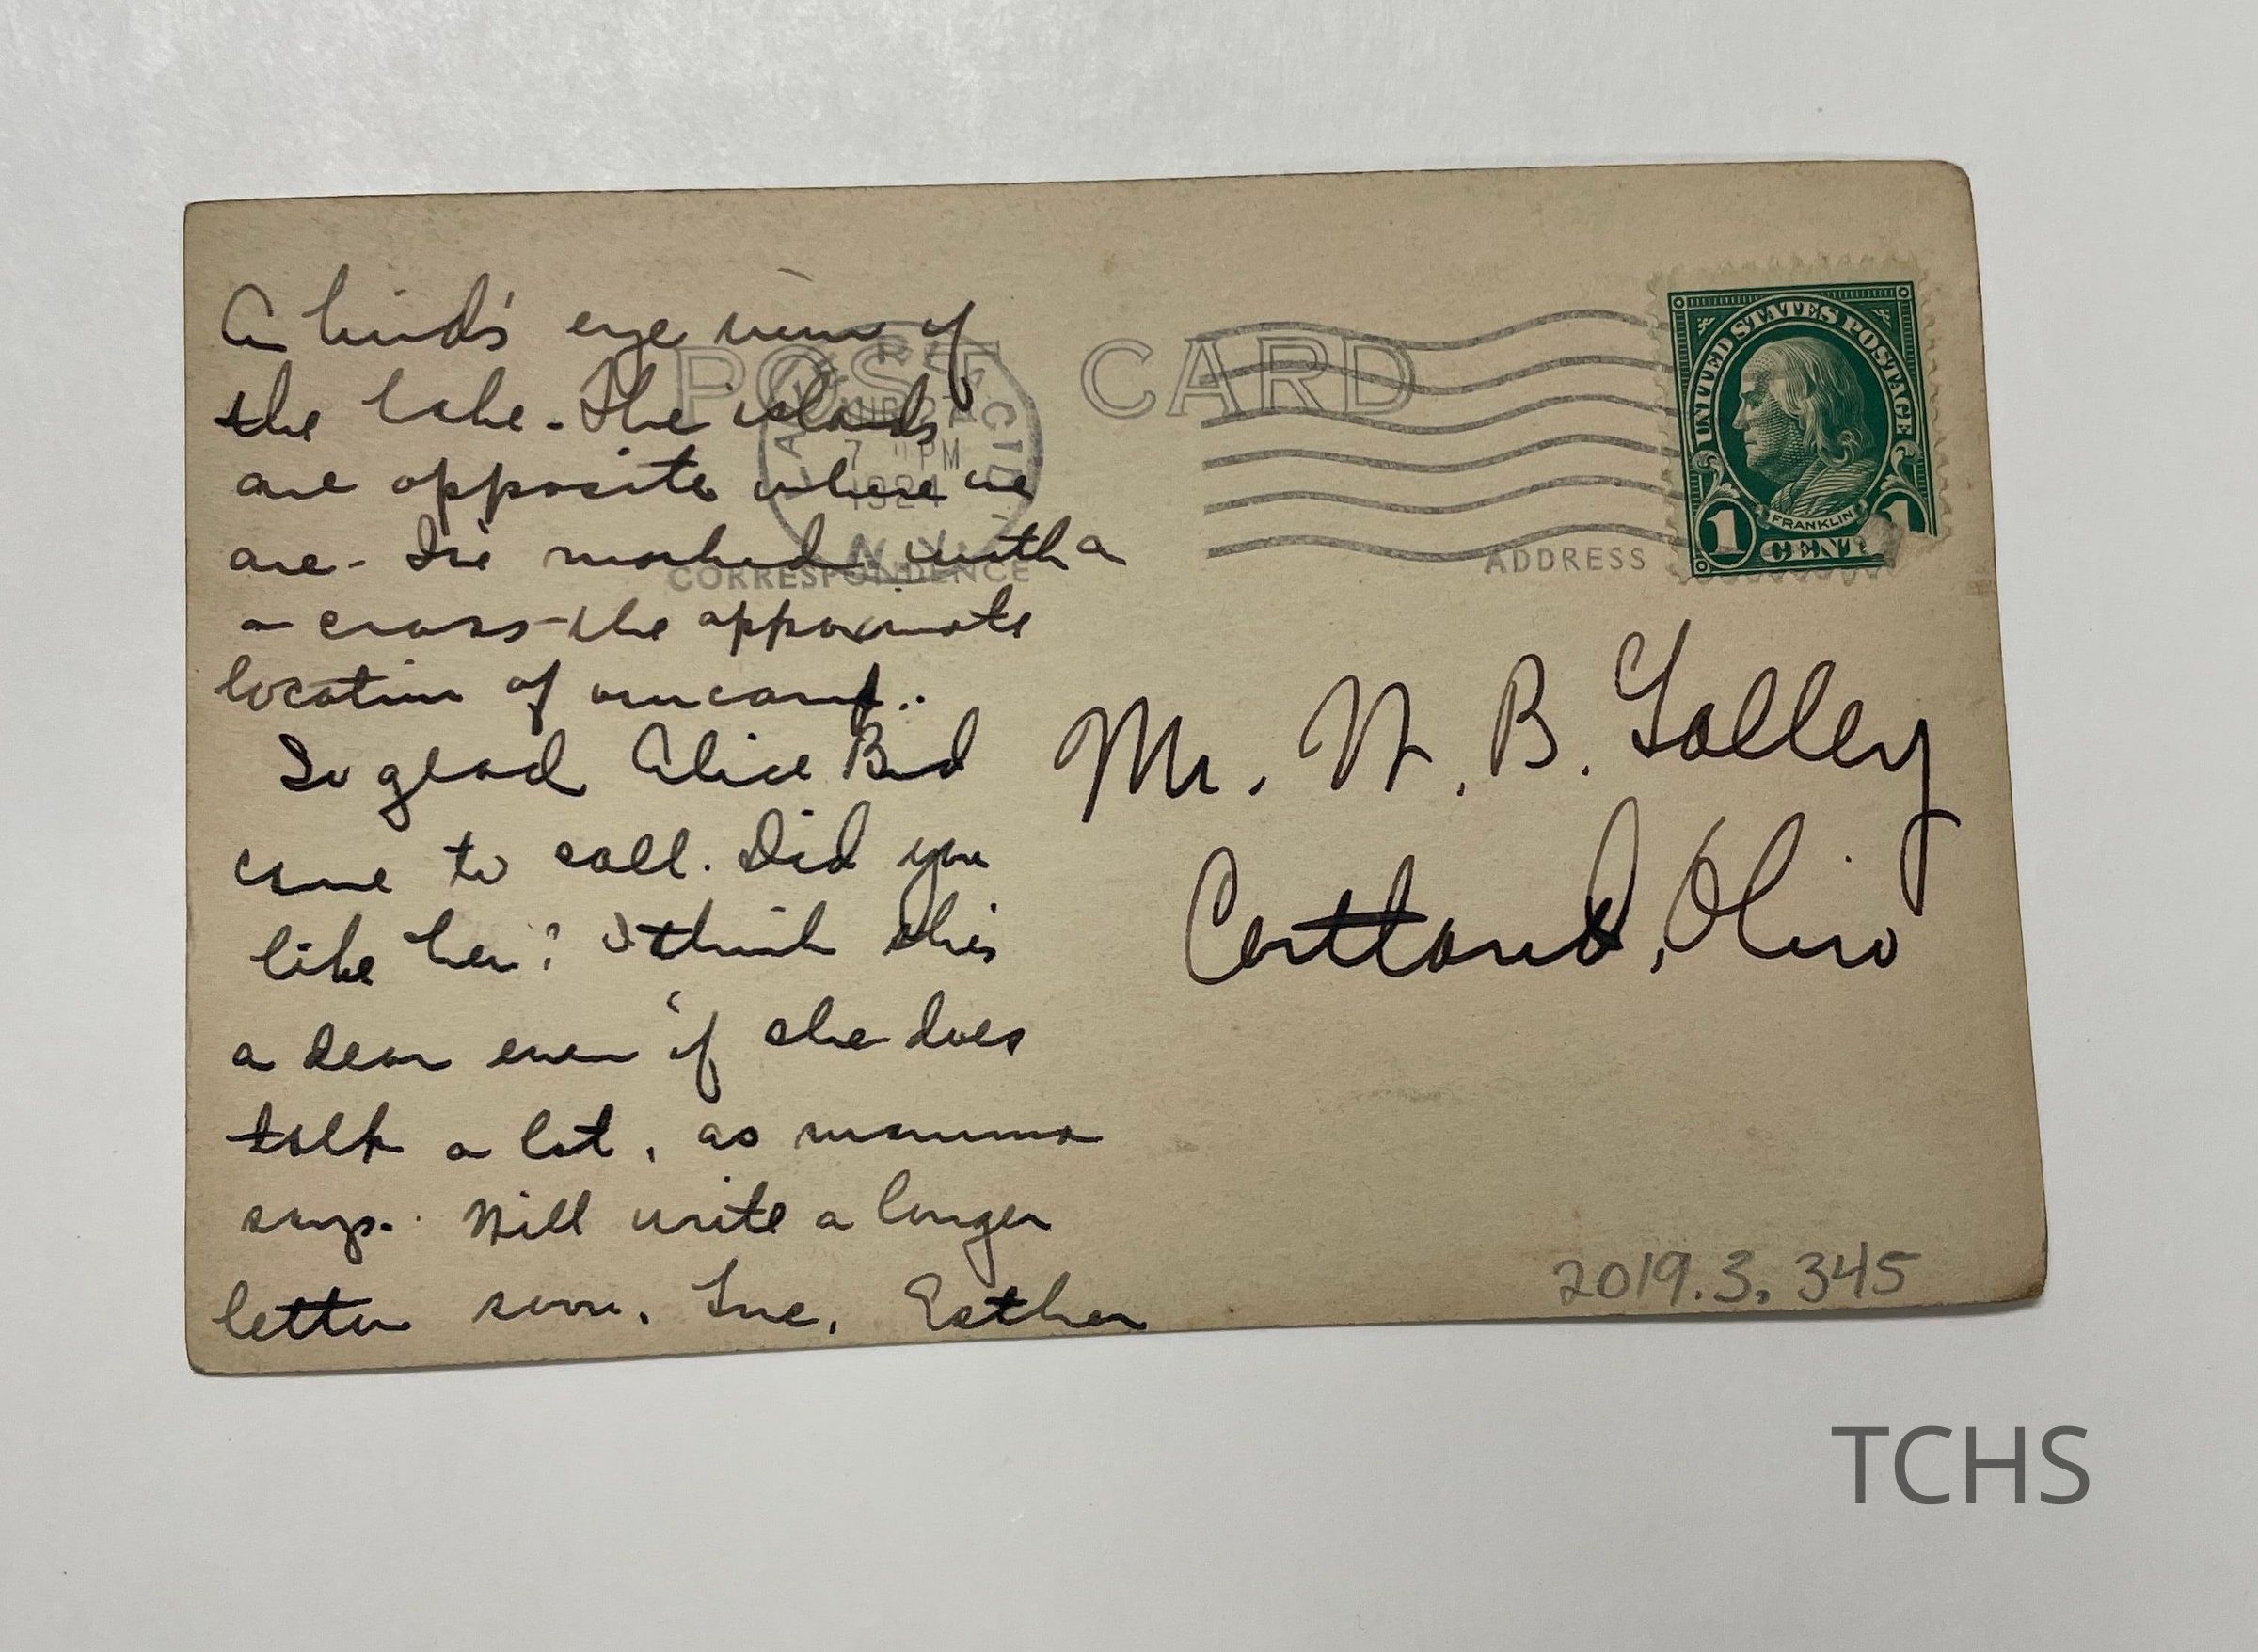 A bird's eye view of
the lake - The islands
are opposite where we
are - I've marked with a
a cross the approximate
location of our camp..
So glad Alice Bird
came to call. Did you
like her? I think she's
a dear even if she does
talk a lot, as mamma
says. Will write a longer
letter soon. Luc, Esther
POST CARD
LAKE PLACID
27
7 PM
1924
N.Y.
CORRESPONDENCE
ADDRESS
UNITED STATES POSTAGE
FRANKLIN
1 CENT 1
Mr. N. B. Tolley
Cortland, Ohio
2019.3.345
TCHS